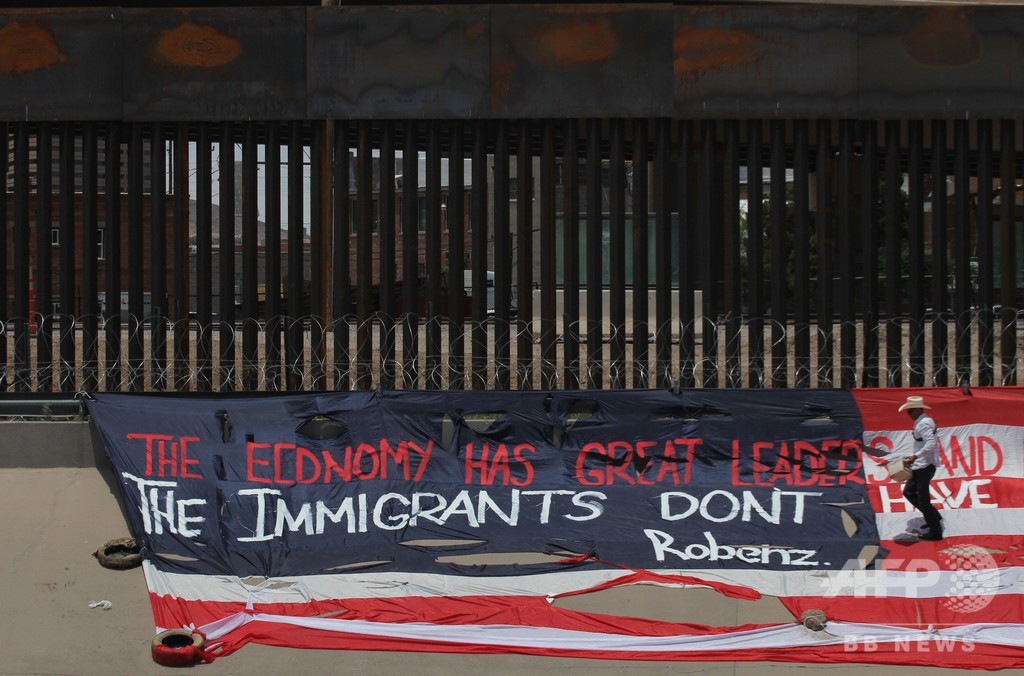 THE ECONOMY HAS GREAT LEADERS AND
THE IMMIGRANTS DONT HAVE
Robenz.
AFP
BB NEWS